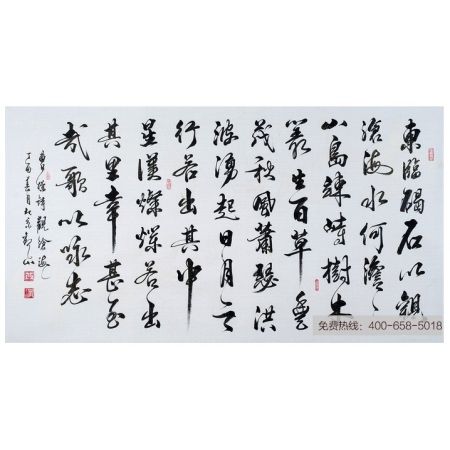 東臨碣石以觀
滄海水何澹々
山島竦峙樹木
叢生百草豐
茂秋風蕭瑟洪
波湧起日月之
行若出其中
星漢燦爛若出
其里幸甚至
哉歌以詠志
曹操詩觀滄海
丁酉春月北京
免费热线：400-658-5018